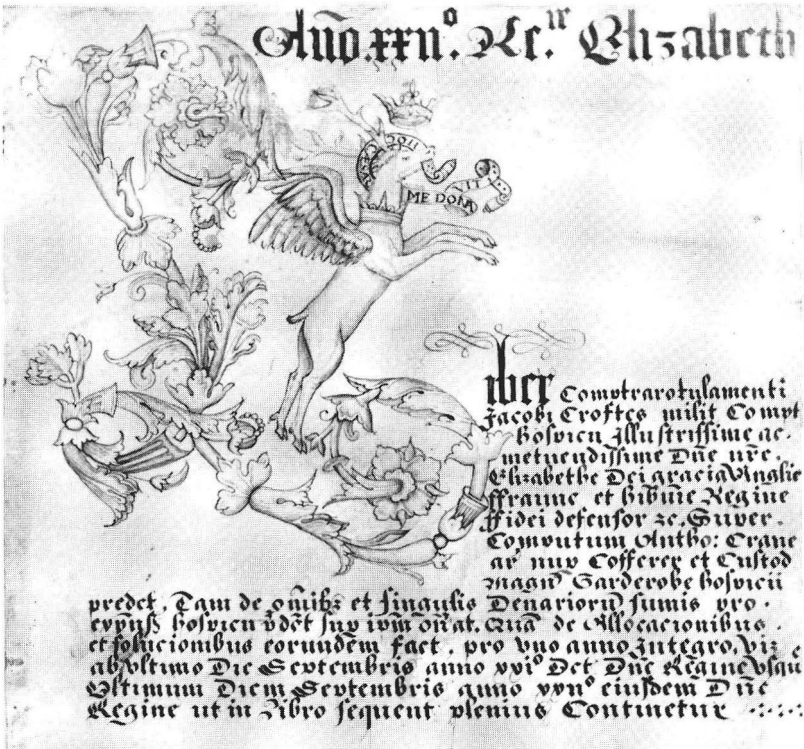 Año. xxijº. Re.ne Elizabeth
SOU
ME DONA
VIT
iber Compotrarotulamenti
Jacobi Croftes milit Compt
hospicii Illustrissime ac
metuendissime Dñe nr̃e
Elizabethe Dei gracia Anglie
ffraunc et hib̃nie Regine
ffidei defensor &c. Super
Compotum Antho: Crane
ar nup Cofferer et Custod
Magñ Garderobe hospicii
predct, Tam de om̃ibz et singulis Denariorũ sumis pro
hospicii p̃dct sup ip̃m on̄at. Quã de Allocacionibus
et solucionibus eorundem fact, pro vno anno Integro, viz
ab vltimo Die Septembris anno xxiº Dct Dñe Regine vsqu
Vltimum Diem Septembris anno xxijº eiusdem Dñe
Regine ut in Libro sequent plenius Continetur